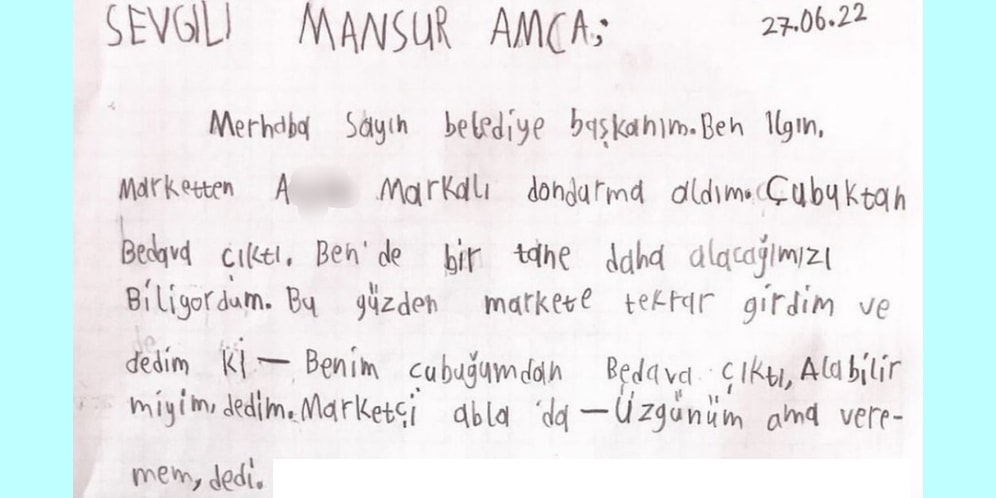 SEVGİLİ MANSUR AMCA; 27.06.22
Merhaba Sayın belediye başkanım. Ben Ilgın,
Marketten A Markalı dondurma aldım. Çubuktan
Bedava çıktı. Ben'de bir tane daha alacağımızı
Biliyordum. Bu yüzden markete tekrar girdim ve
dedim ki — Benim çubuğumdan Bedava çıktı, Alabilir
miyim, dedim. Marketçi abla 'da — Üzgünüm ama vere-
mem, dedi.